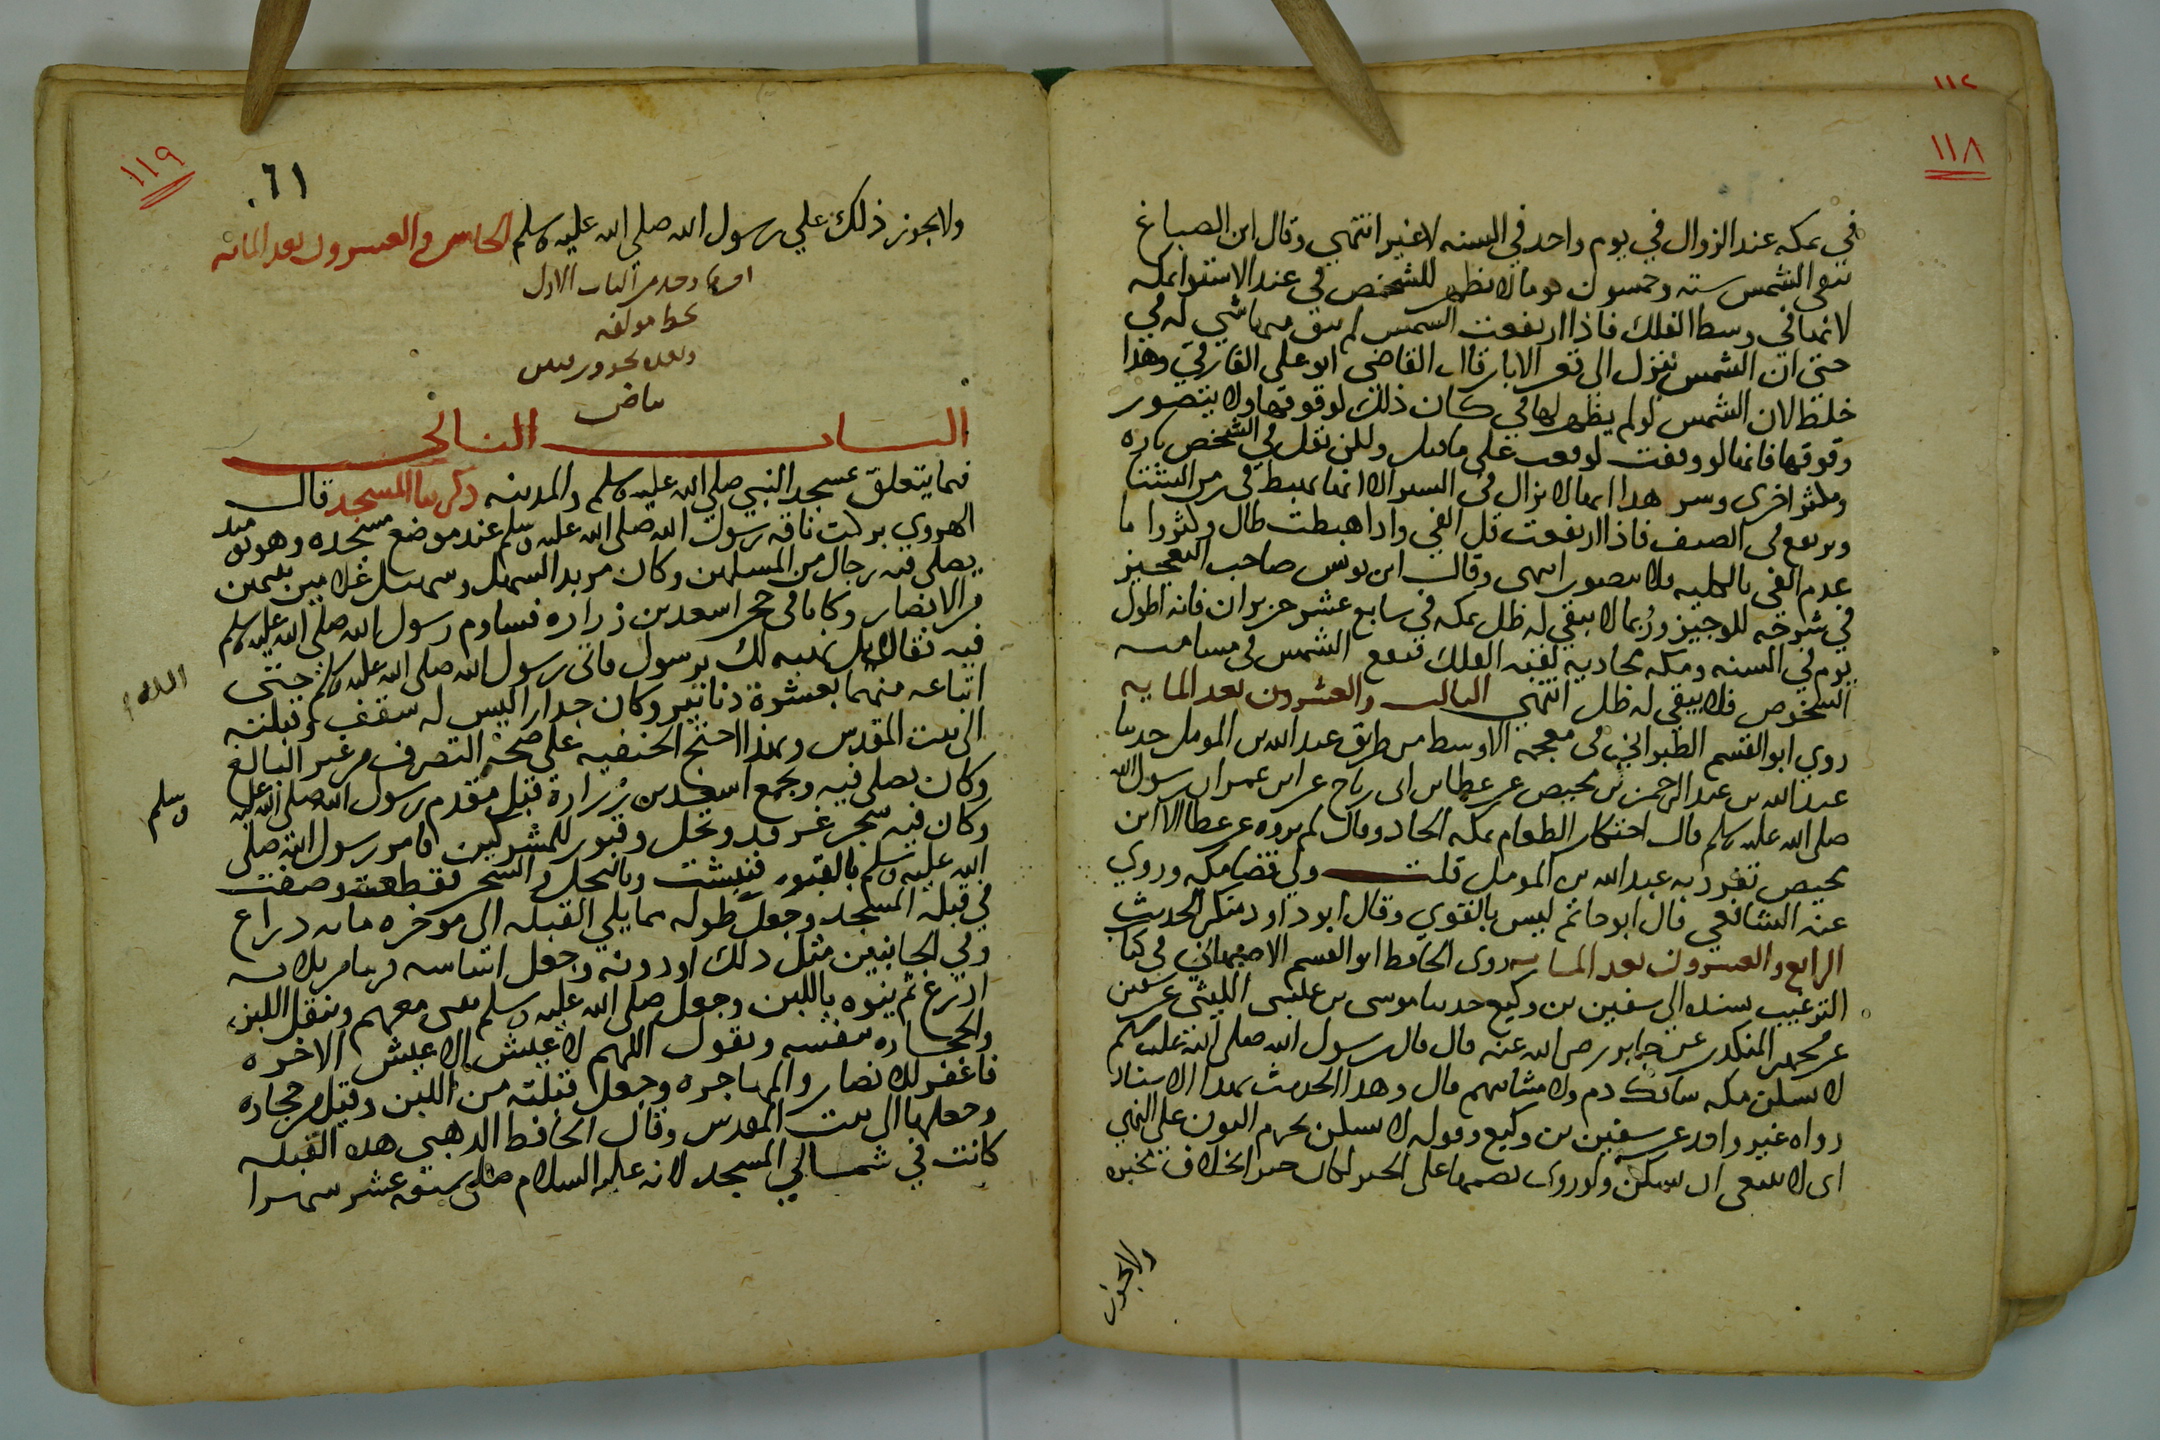 ١١٢
١١٨
في بمكه عند الزوال في يوم واحد في السنه لا غير انتهي وقال ابن الصباغ
تبقى الشمس سته وخمسون يوما لا تظهر للشخص في عند الاستوا بمكه
لانها في وسط الفلك فاذا ارتفعت الشمس لم يبق فيها شي له في
حتي ان الشمس تنزل الى قعر الابار قال القاضي ابو علي الفارقي وهذا
غلط لان الشمس لو لم يظهر لها في كان ذلك لوقوفها ولا يتصور
وقوفها فانها لو وقفت لوقعت على ما قيل ولكن يقل في الشخص تاره
ويكثر اخرى وسر هذا انها لا تزال في السير الا انها تهبط في زمن الشتا
وترتفع في الصيف فاذا ارتفعت قل الفي واذا هبطت طال وكثر واما
عدم الفي بالكليه فلا يتصور انتهى وقال ابن يونس صاحب التعجيز
في شرحه للوجيز وربما لا يبقي له ظل بمكه في سابع عشر حزيران فانه اطول
يوم في السنه ومكه محاذيه لقبه الفلك فتقع الشمس في مسامته
الشخوص فلا يبقي له ظل انتهي الثالث والعشرون بعد المايه
روي ابو القسم الطبراني في معجمه الاوسط من طريق عبد الله بن المومل حدثنا
عبد الله بن عبد الرحمن بن محيصن عن عطا بن ابي رباح عن ابن عمر ان رسول الله
صلى الله عليه وسلم قال احتكار الطعام بمكه الحاد وقال لم يروه عن عطا الا ابن
محيصن تفرد به عبد الله بن المومل قلت ولي قضا مكه وروي
عنه الشافعي قال ابو حاتم ليس بالقوي وقال ابو داود منكر الحديث
الرابع والعشرون بعد المايه روى الحافظ ابو القسم الاصبهاني في كتاب
الترغيب بسنده الى سفين بن وكيع حدثنا موسى بن عيسى الليثي عن سفين
عن محمد بن المنكدر عن جابر رضي الله عنه قال قال رسول الله صلى الله عليه وسلم
لا يسكن مكه سافك دم ولا مشا بنميم قال وهذا الحديث بهذا الاسناد
رواه غير واحد عن سفين بن وكيع وقوله لا يسكن بجزم النون على النهي
اي لا ينبغي ان يسكن ولو روي بضمها على الخبر لكان خبرا لا خلاف مخبره
ولا يجوز
١١٩
٦١
ولا يجوز ذلك علي رسول الله صلي الله عليه وسلم الخامس والعشرون بعد المائه
بخط مولفه
بياض
البـــاب الثـانـي
فيما يتعلق بمسجد النبي صلي الله عليه وسلم والمدينه ذكر بنا المسجد قال
الهروي بركت ناقه رسول الله صلى الله عليه وسلم عند موضع مسجده وهو يوميد
يصلي فيه رجال من المسلمين وكان مربدا لسهل وسهيل غلامين يتيمين
من الانصار وكانا في حجر اسعد بن زراره فساوم رسول الله صلى الله عليه وسلم
فيه فقالا بل نهبه لك يرسول فابى رسول الله صلى الله عليه وسلم حتى
الله
ابتاعه منهما بعشرة دنانير وكان جدارا ليس له سقف وقبلته
الى بيت المقدس وبهذا احتج الحنفيه على صحة التصرف من غير البالغ
وكان يصلي فيه ويجمع اسعد بن زرارة قبل مقدم رسول الله صلى الله عليه
وسلم
وكان فيه شجر غرقد ونخل وقبور للمشركين فامر رسول الله صلى
الله عليه وسلم بالقبور فنبشت وبالنخل والشجر فقطعت وصفت
في قبلة المسجد وجعل طوله مما يلي القبله الى موخره مايه ذراع
وفي الجانبين مثل ذلك او دونه وجعل اساسه قريبا من ثلاثه
اذرع ثم بنوه باللبن وجعل صلى الله عليه وسلم يبني معهم وينقل اللبن
والحجاره بنفسه ويقول اللهم لا عيش الا عيش الاخره
فاغفر للانصار والمهاجره وجعل قبلته من اللبن وقيل من حجاره
وجعلها الى بيت المقدس وقال الحافظ الذهبي هذه القبله
كانت في شمالي المسجد لانه عليه السلام صلى ستة عشر شهرا